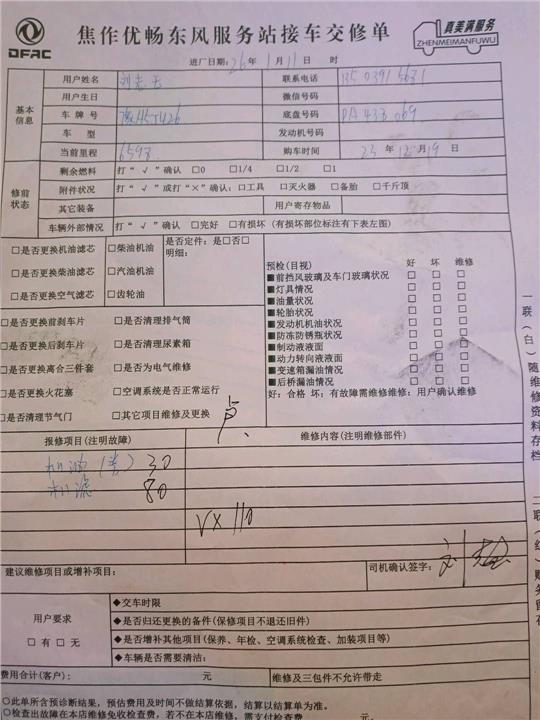 DFAC
焦作优畅东风服务站接车交修单
真美满服务
ZHENMEIMANFUWU
进厂日期: 26 年 1 月 11 日 时
基本信息
用户姓名
联系电话
用户生日 微信号码
车牌号 豫H5T426 底盘号码
车型 发动机号码
当前里程 6598 购车时间 25 年 12 月 19 日
修前状态
剩余燃料 打“√”确认 □0 □1/4 □1/2 □1
附件状况 打“√”或打“×”确认: □工具 □灭火器 □备胎 □千斤顶
其它装备 用户寄存物品
车辆外部情况 打“√”确认 □完好 □有损坏 (有损坏部位标注有下表左图)
□是否更换机油滤芯 □柴油机油
□是否更换柴油滤芯 □汽油机油
□是否更换空气滤芯 □齿轮油
是否定件: 是□否□
明细:
□是否更换前刹车片 □是否清理排气筒
□是否更换后刹车片 □是否清理尿素箱
□是否更换离合三件套 □是否为电气维修
□是否更换火花塞 □空调系统是否正常运行
□是否清理节气门 □其它项目维修及更换
预检(目视) 好 坏 维修
■前挡风玻璃及车门玻璃状况 □ □ □
■灯具情况 □ □ □
■油量状况 □ □ □
■轮胎状况 □ □ □
■发动机机油情况 □ □ □
■防冻防锈瓶状况 □ □ □
■制动液液面 □ □ □
■动力转向液液面 □ □ □
■变速箱漏油情况 □ □ □
■后桥漏油情况 □ □ □
好: 合格 坏: 有故障需维修维修: 用户确认维修
报修项目(注明故障) 维修内容(注明维修部件)
机油 30
机滤 80
110
建议维修项目或增补项目: 司机确认签字:
用户要求
□有 □无
◆交车时限
◆是否归还更换的备件(保修项目不退还旧件)
◆是否增补其他项目(保养、年检、空调系统检查、加装项目等)
◆车辆是否需要清洁:
费用合计(客户): 元 维修及三包件不允许带走
○此单所含预诊断结果,预估费用及时间不做结算依据,结算以结算单为准。
○检查出故障在本店维修免收检查费,若不在本店维修,需支付检查费 元
一联(白)随维修资料存档
二联(红)